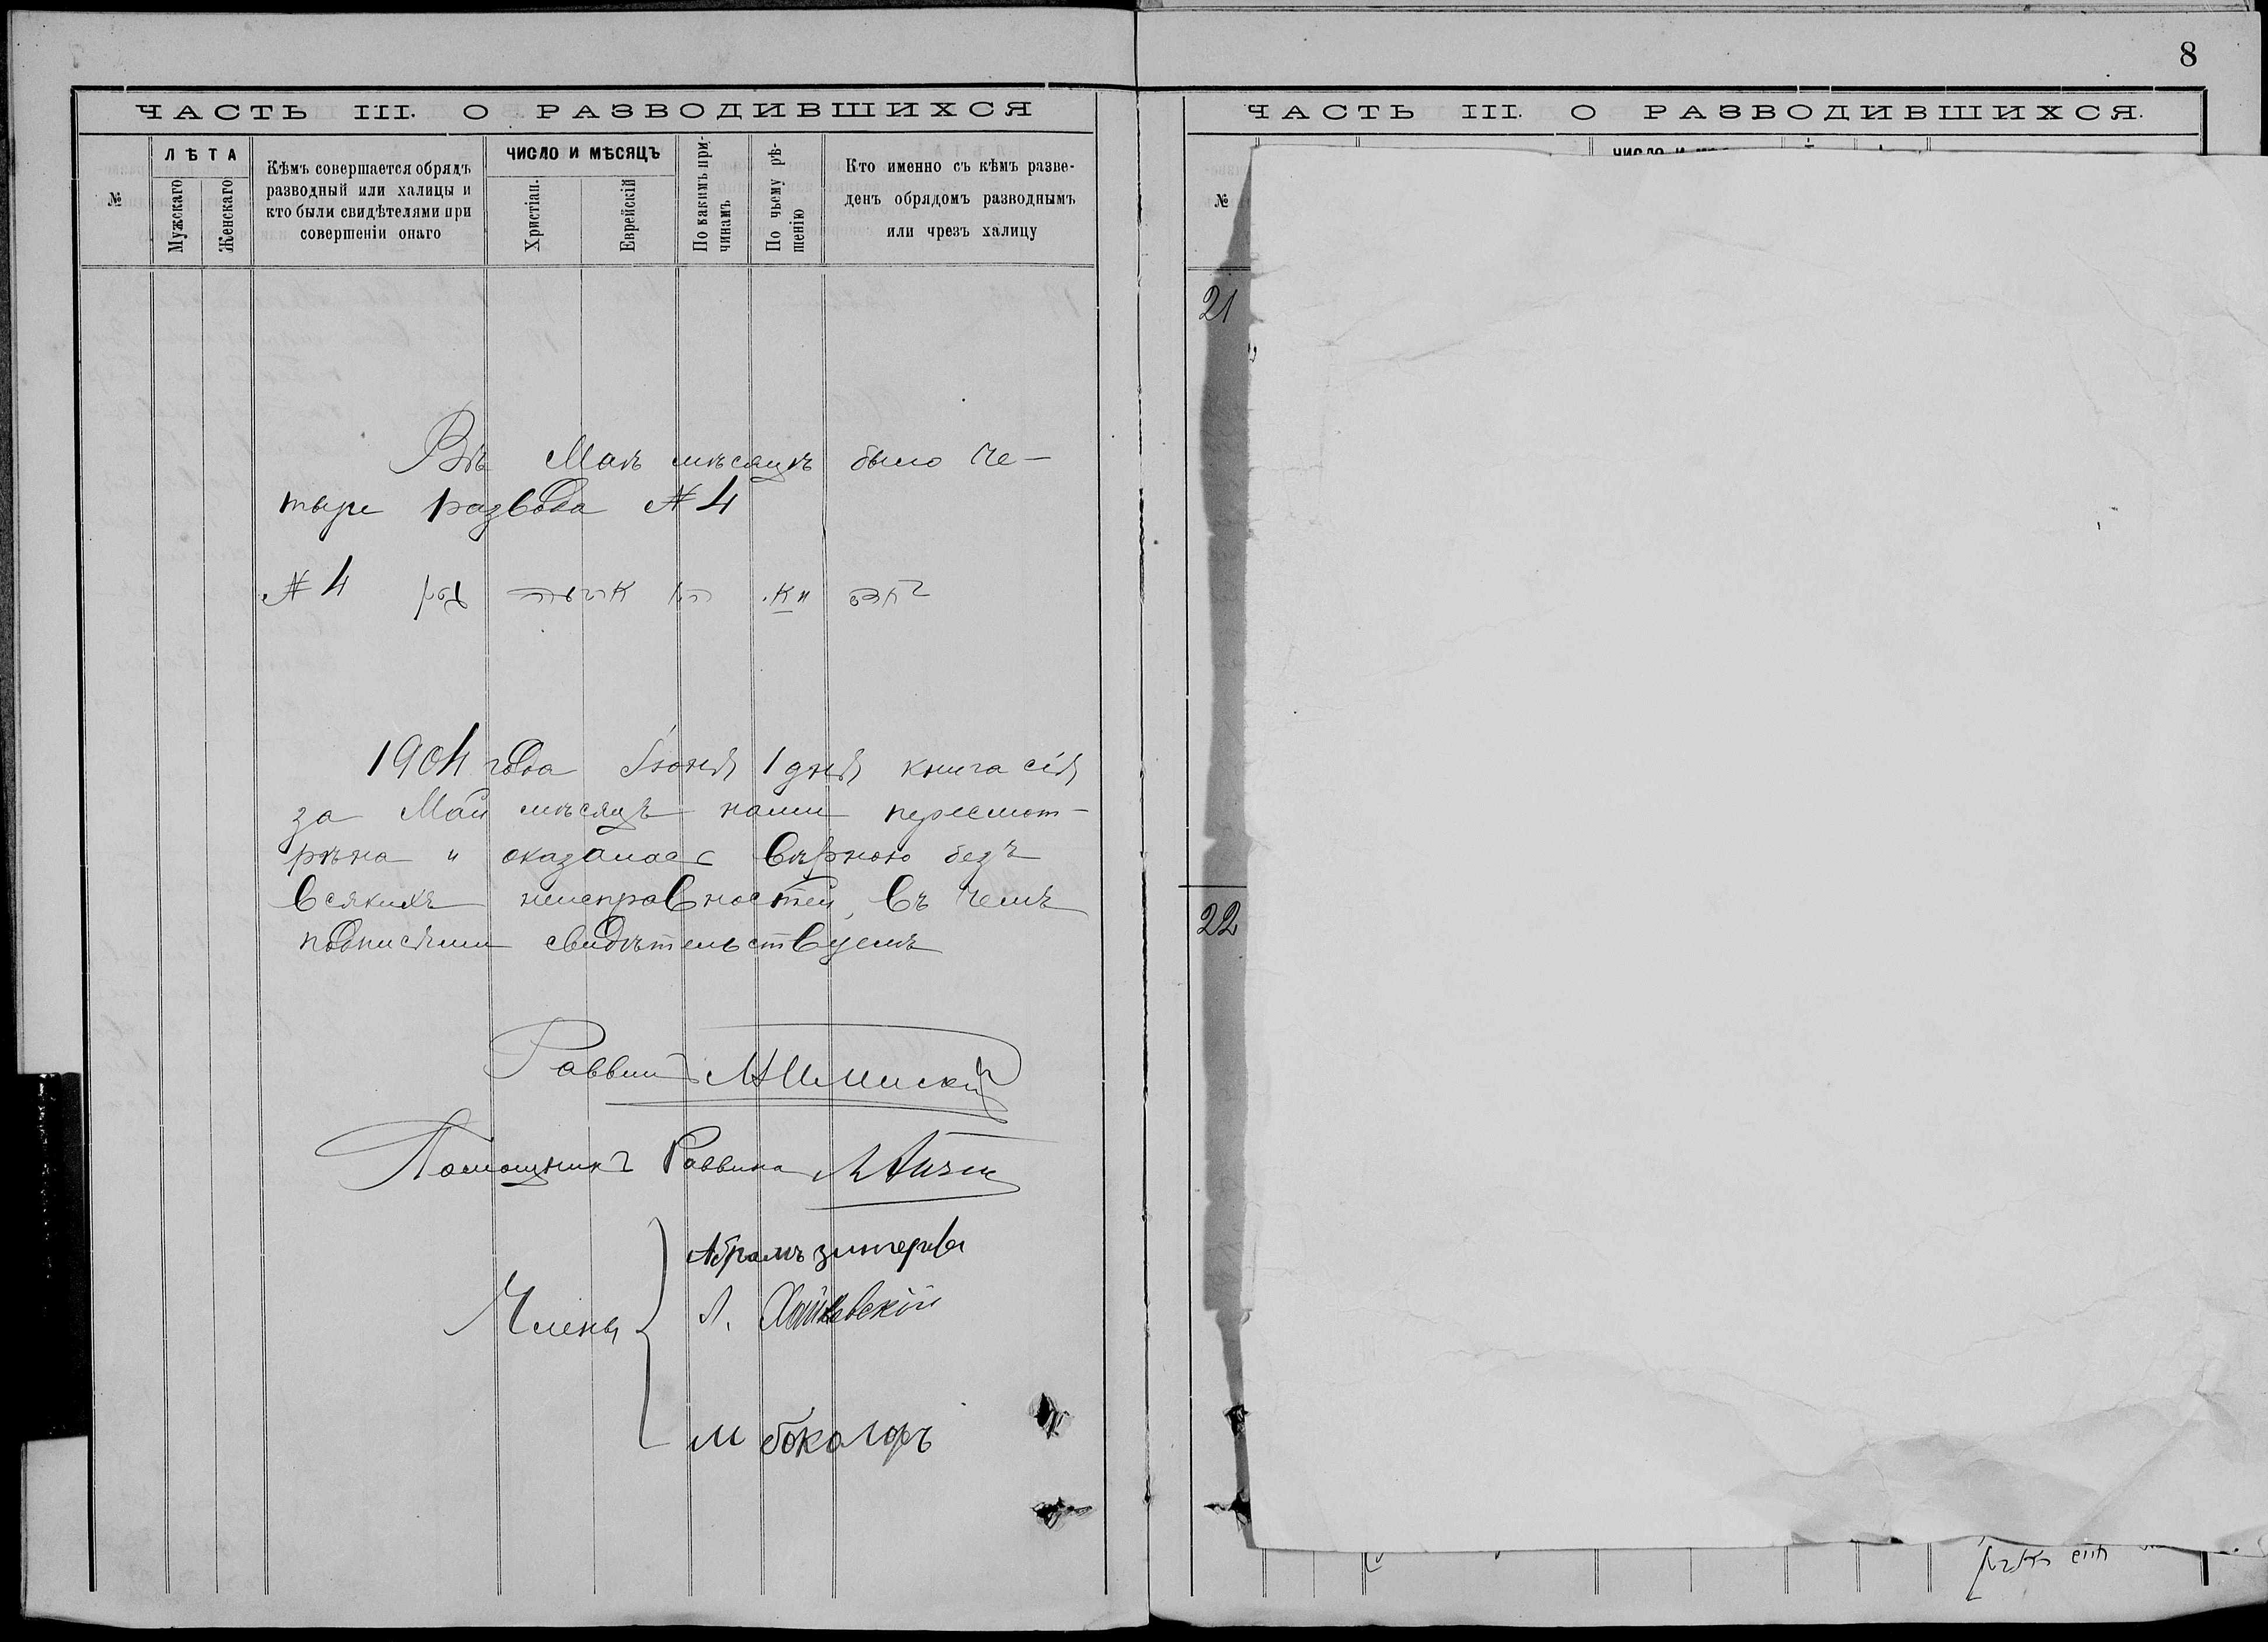 8
ЧАСТЬ III. О РАЗВОДИВШИХСЯ
№
ЛѢТА
Мужскаго
Женскаго
Кѣмъ совершается обрядъ
разводный или халицы и
кто были свидѣтелями при
совершеніи онаго
ЧИСЛО И МѢСЯЦЪ
Христіан.
Еврейскій
По какимъ при-
чинамъ
По чьему рѣ-
шенію
Кто именно съ кѣмъ разве-
денъ обрядомъ разводнымъ
или чрезъ халицу
Въ Маѣ мѣсяцѣ было че-
тыре развода № 4
№ 4
1904 года Іюня 1 дня книга сія
за Май мѣсяцъ нами пересмот-
рѣна и оказалась вѣрною безъ
всякихъ неисправностей, въ чемъ
подписями свидѣтельствуемъ
Раввинъ
Помощникъ Раввина
Члены
Абрамъ
Л.
М Бокалоръ
ЧАСТЬ III. О РАЗВОДИВШИХСЯ.
№
21
22